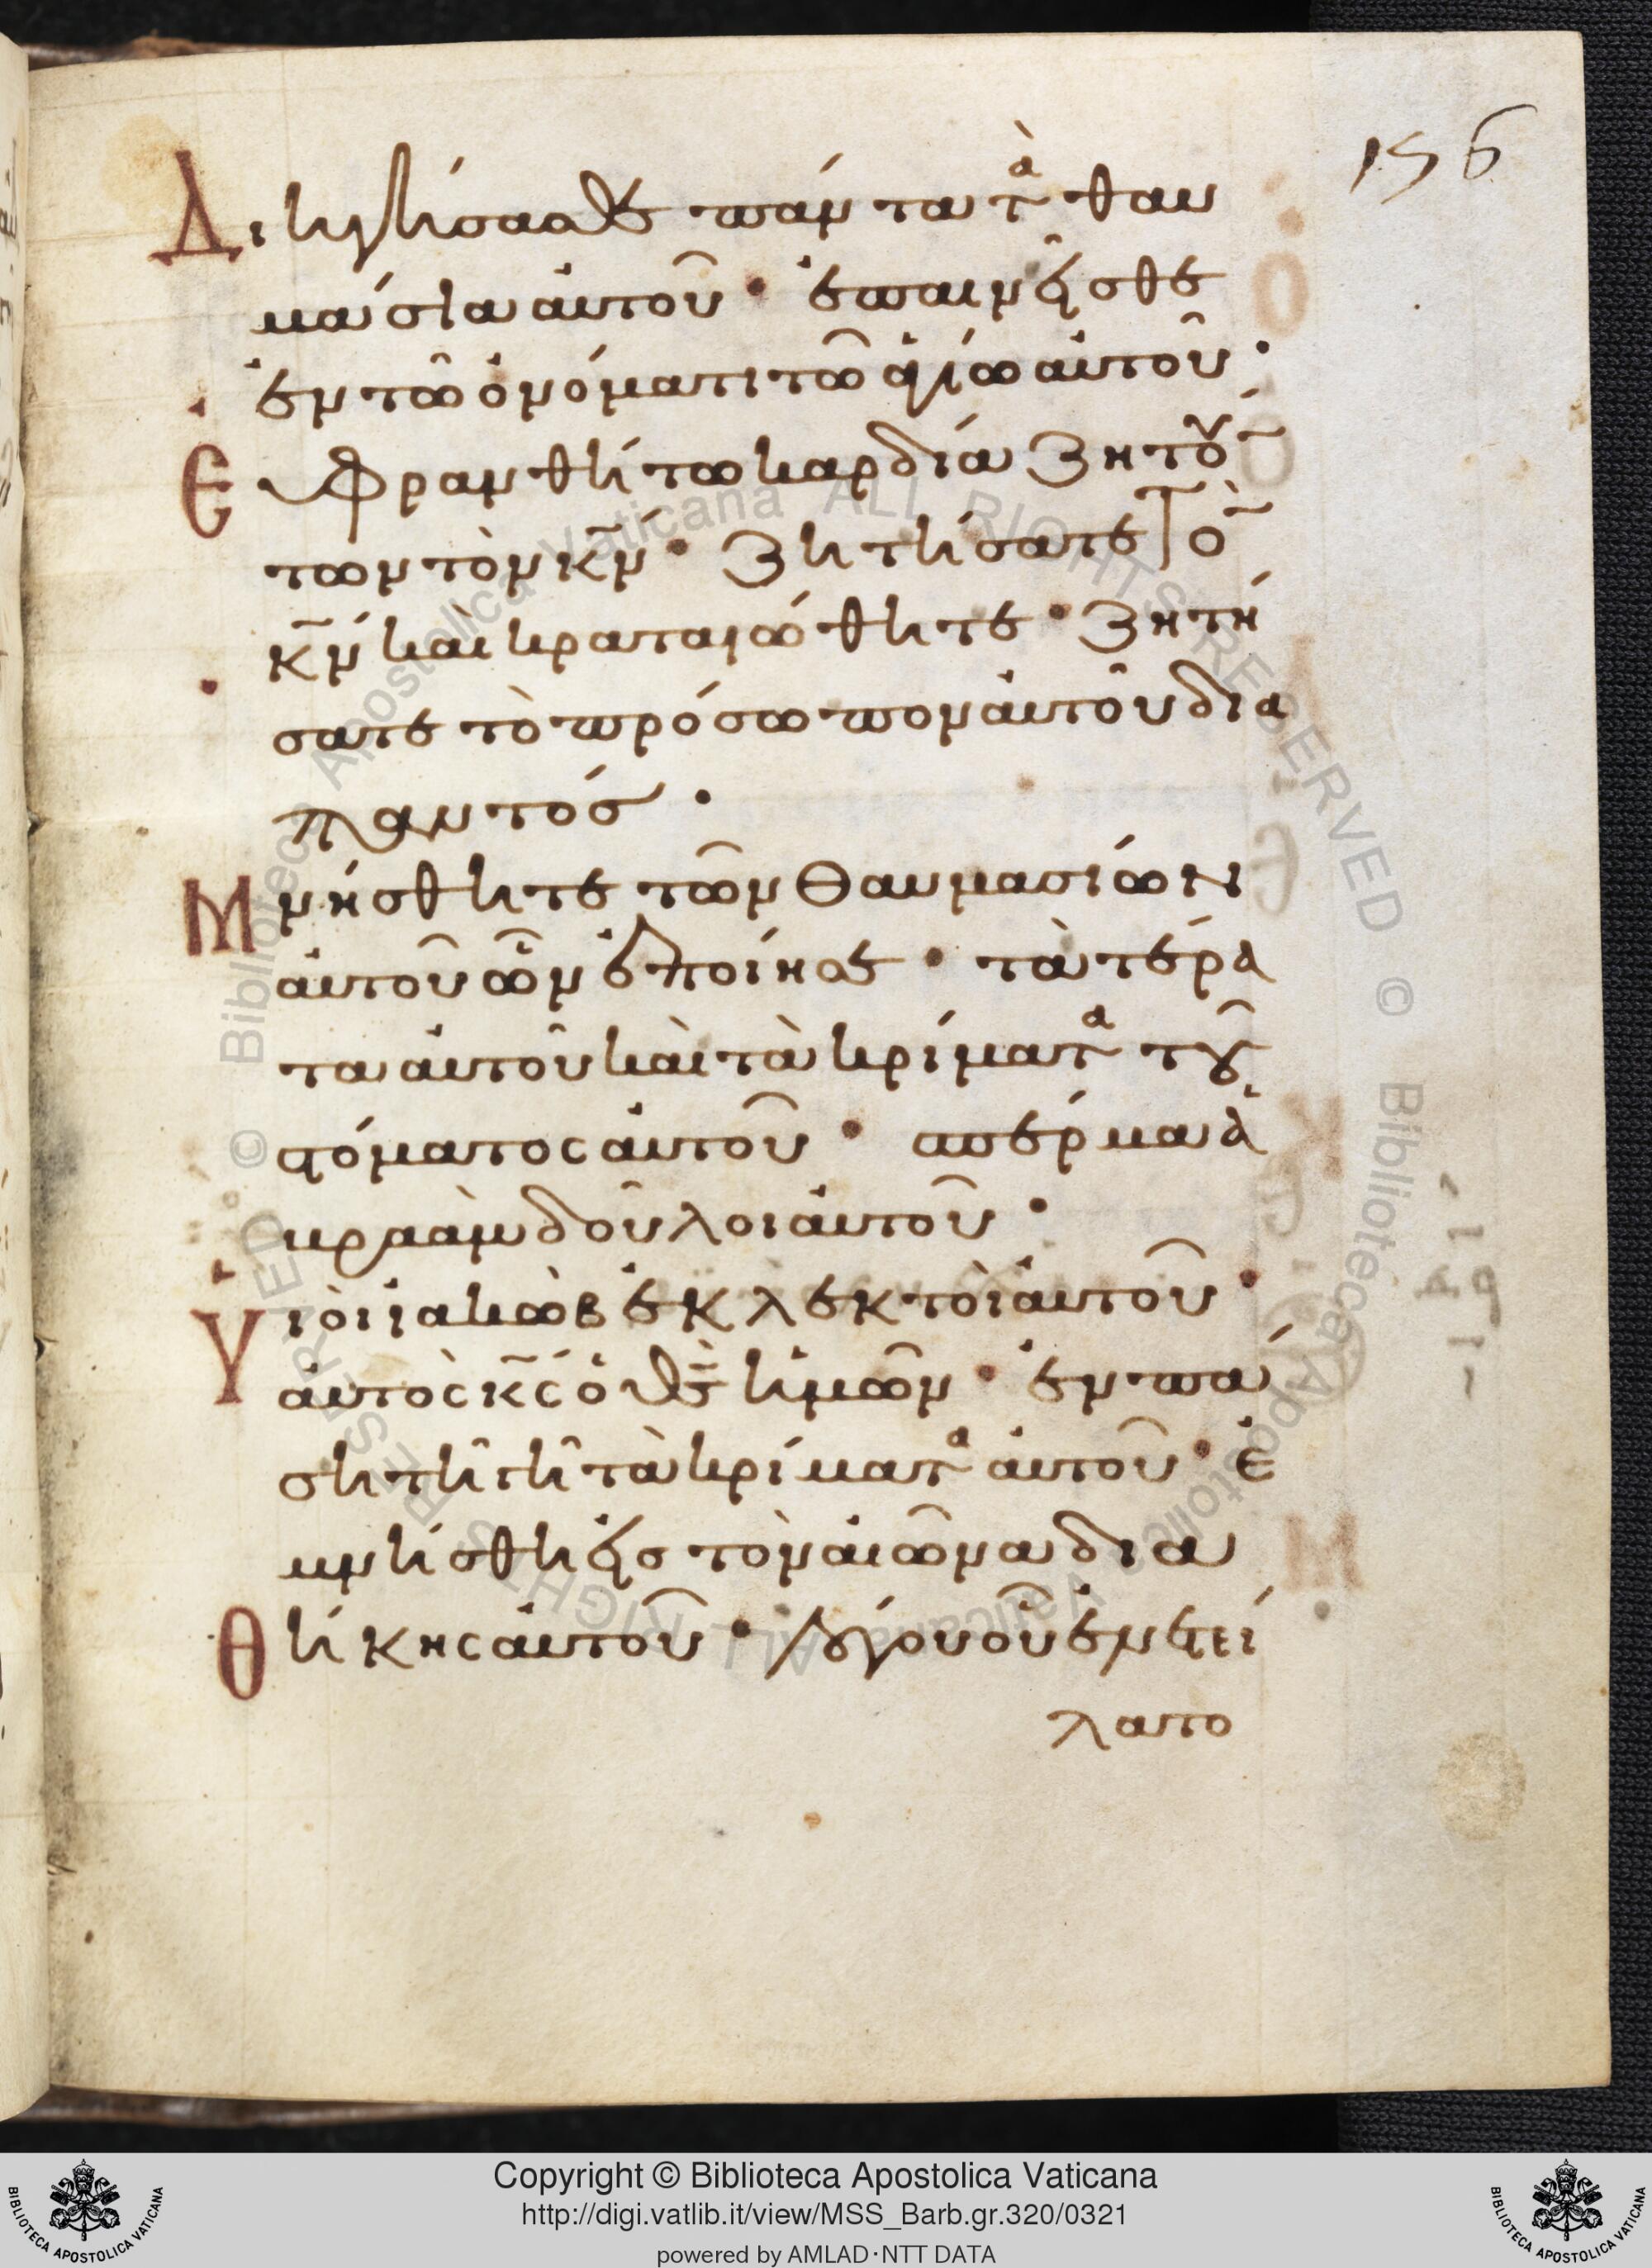 156
Διηγήσασθε πάντα τὰ θαυ
μάσια ἀυτοῦ· ἐπαινεῖσθε
ἐν τῶ ὀνόματι τῶ ἁγίω ἀυτοῦ·
Εὐφρανθήτω καρδία ζητού
των τὸν κ̅ν̅· ζητήσατε τὸ
κ̅ν̅ καὶ κραταιώθητε· ζητή
σατε τὸ πρόσωπον ἀυτοῦ δια
παντόσ·
Μνήσθητε τῶν θαυμασίων
ἀυτοῦ ὧν ἐποίησε· τὰ τέρα
τα ἀυτοῦ καὶ τὰ κρίματα τοῦ
στόματος ἀυτοῦ· σπέρμα ἀ
βραὰμ δοῦλοι ἀυτοῦ·
Υἱὸι ἰακὼβ ἐκλεκτὸι ἀυτοῦ·
ἀυτὸς κ̅ς̅ ὁ θ̅ς̅ ἡμῶν· ἐν πά
ση τῆ γῆ τὰ κρίματα ἀυτοῦ· ἐ
μνήσθη εἰσ τὸν ἀιῶνα δια
θήκης ἀυτοῦ· λόγου οὗ ἐνετεί
λατο
Copyright © Biblioteca Apostolica Vaticana
http://digi.vatlib.it/view/MSS_Barb.gr.320/0321
powered by AMLAD·NTT DATA
BIBLIOTECA APOSTOLICA VATICANA
BIBLIOTECA APOSTOLICA VATICANA
© Biblioteca Apostolica Vaticana ALL RIGHTS RESERVED © Biblioteca Apostolica Vaticana ALL RIGHTS RESERVED